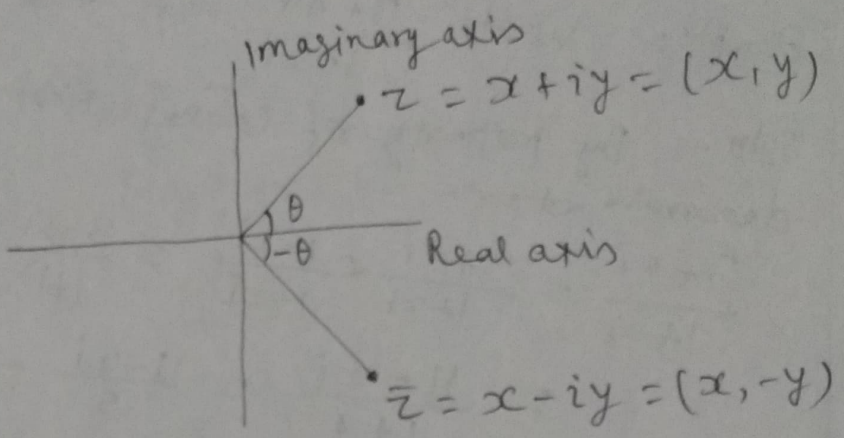 Imaginary axis
z = x + iy = (x, y)
θ
-θ
Real axis
z̄ = x - iy = (x, -y)